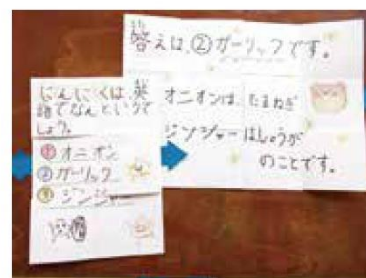 にんにくは英
語でなんというで
しょう。
①オニオン
②ガーリック
③ジンジャー
答えは、②ガーリックです。
オニオンは、たまねぎ
ジンジャーはしょうが
のことです。